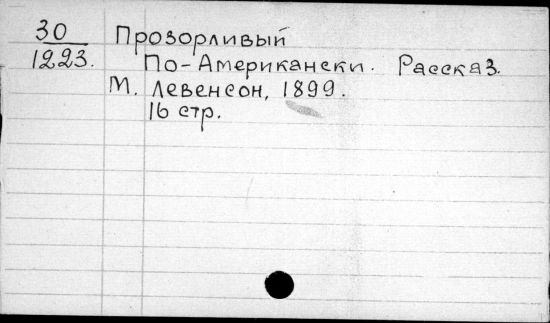 30
1223.
Прозорливый
По-Американски. Рассказ.
М. Левенсон, 1899.
16 стр.